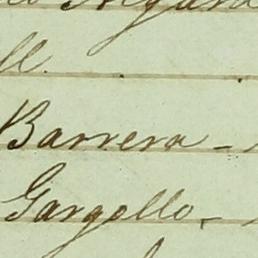 ll.
Barrera -
Gargollo -